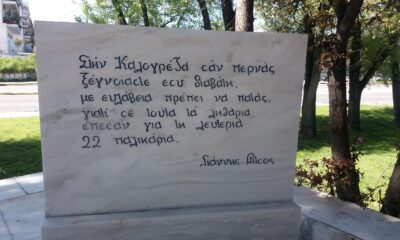 Στήν Καλογρέζα σάν περνάς
ξέγνοιαστε εσύ διαβάτη,
με ευλάβεια πρέπει να πατάς,
γιατί σέ τούτα τά λιθάρια
έπεσαν γιά τη λευτεριά
22 παλικάρια.
Γιάννης Ρίτσος